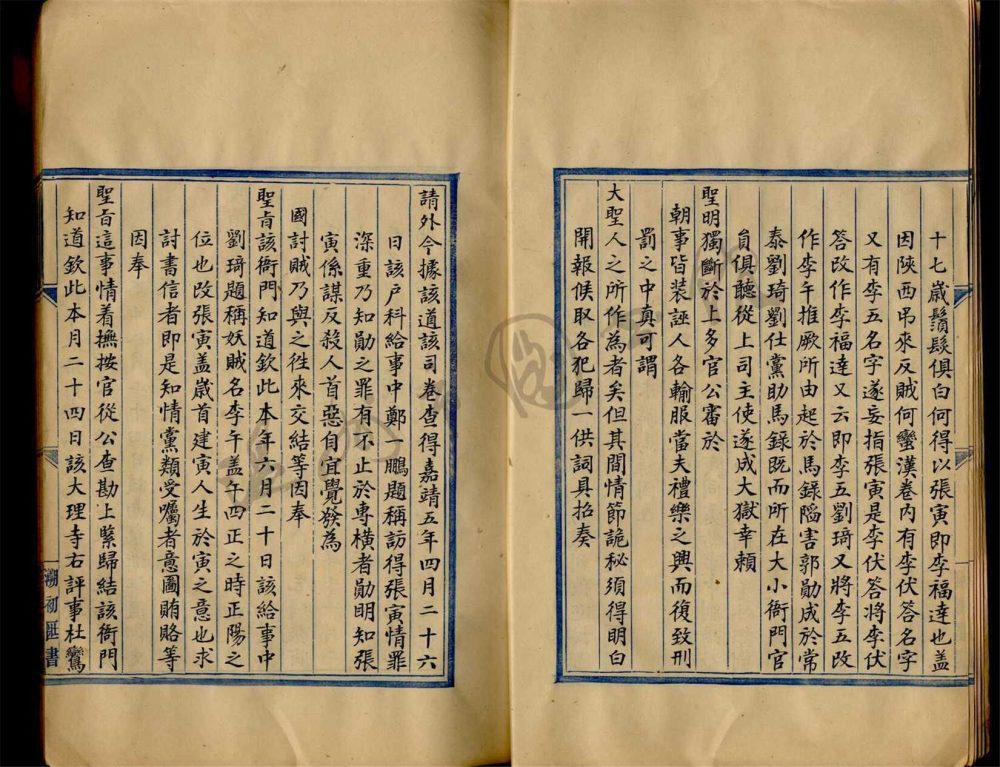 十七歲鬚髮俱白何得以張寅即李福達也盖
因陝西吊來反賊何蠻漢卷內有李伏答名字
又有李五名字遂妄指張寅是李伏答將李伏
答改作李福達又云即李五劉琦又將李五改
作李午推厥所由起於馬錄陷害郭勛成於常
泰劉琦劉仕黨助馬錄既而所在大小衙門官
負俱聽從上司主使遂成大獄幸賴
聖明獨斷於上多官公審於
朝事皆裝誣人各輸服當夫禮樂之興而復致刑
罰之中真可謂
大聖人之所作為者矣但其間情節詭秘須得明白
開報候取各犯歸一供詞具招奏
請外今據該道該司卷查得嘉靖五年四月二十六
日該戶科給事中鄭一鵬題稱訪得張寅情罪
深重乃知勛之罪有不止於專横者勛明知張
寅係謀反殺人首惡自宜覺發為
國討賊乃與之徃來交結等因奉
聖旨該衙門知道欽此本年六月二十日該給事中
劉琦題稱妖賊名李午盖午四正之時正陽之
位也改張寅盖歲首建寅人生於寅之意也求
討書信者即是知情黨類受囑者意圖賄賂等
因奉
聖旨這事情着撫按官從公查勘上緊歸結該衙門
知道欽此本月二十四日該大理寺右評事杜鸞
溯初匨書